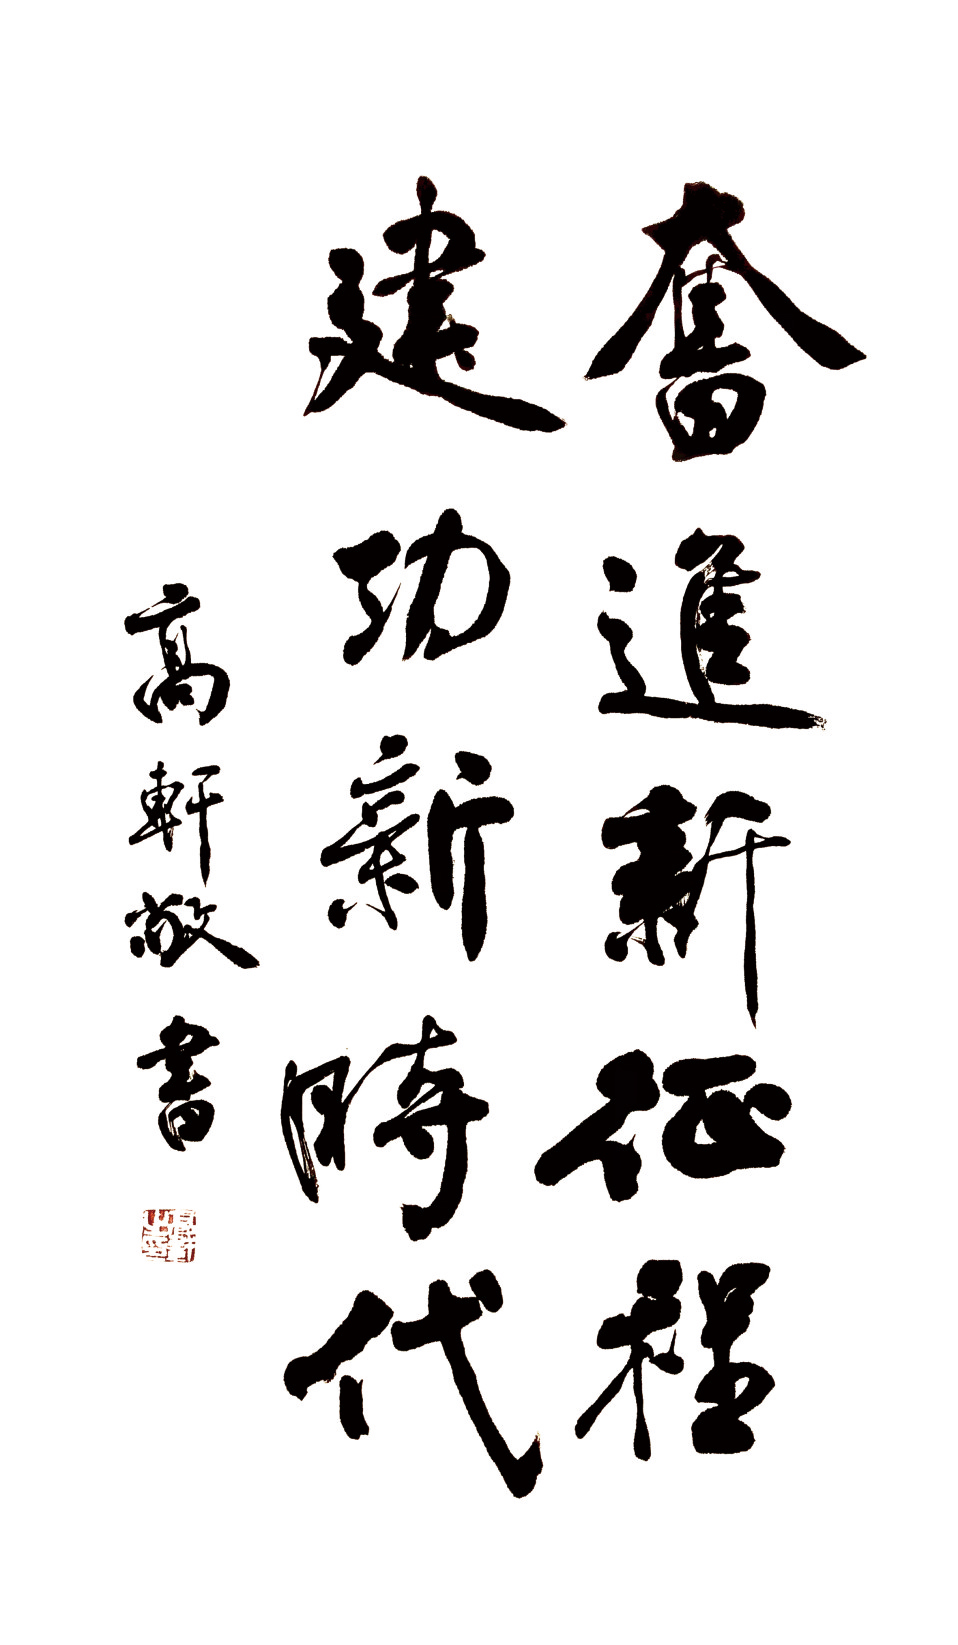 奮進新征程
建功新時代
高軒敬書